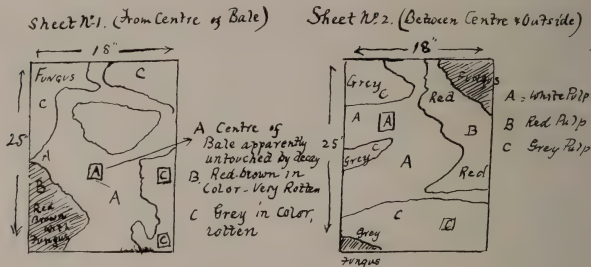 Sheet No. 1. (From Centre of Bale)
18"
25"
FUNGUS
C
C
A
B
Red
Brown
with
Fungus
A
A
C
C
A Centre of
Bale apparently
untouched by decay
B Red-brown in
Color - Very Rotten
C Grey in Color,
rotten
Sheet No. 2. (Between Centre & Outside)
18"
25"
Grey
C
Fungus
Red
A
A
B
C
Grey
A
Red
C
C
Grey
Fungus
A = White Pulp
B Red Pulp
C Grey Pulp